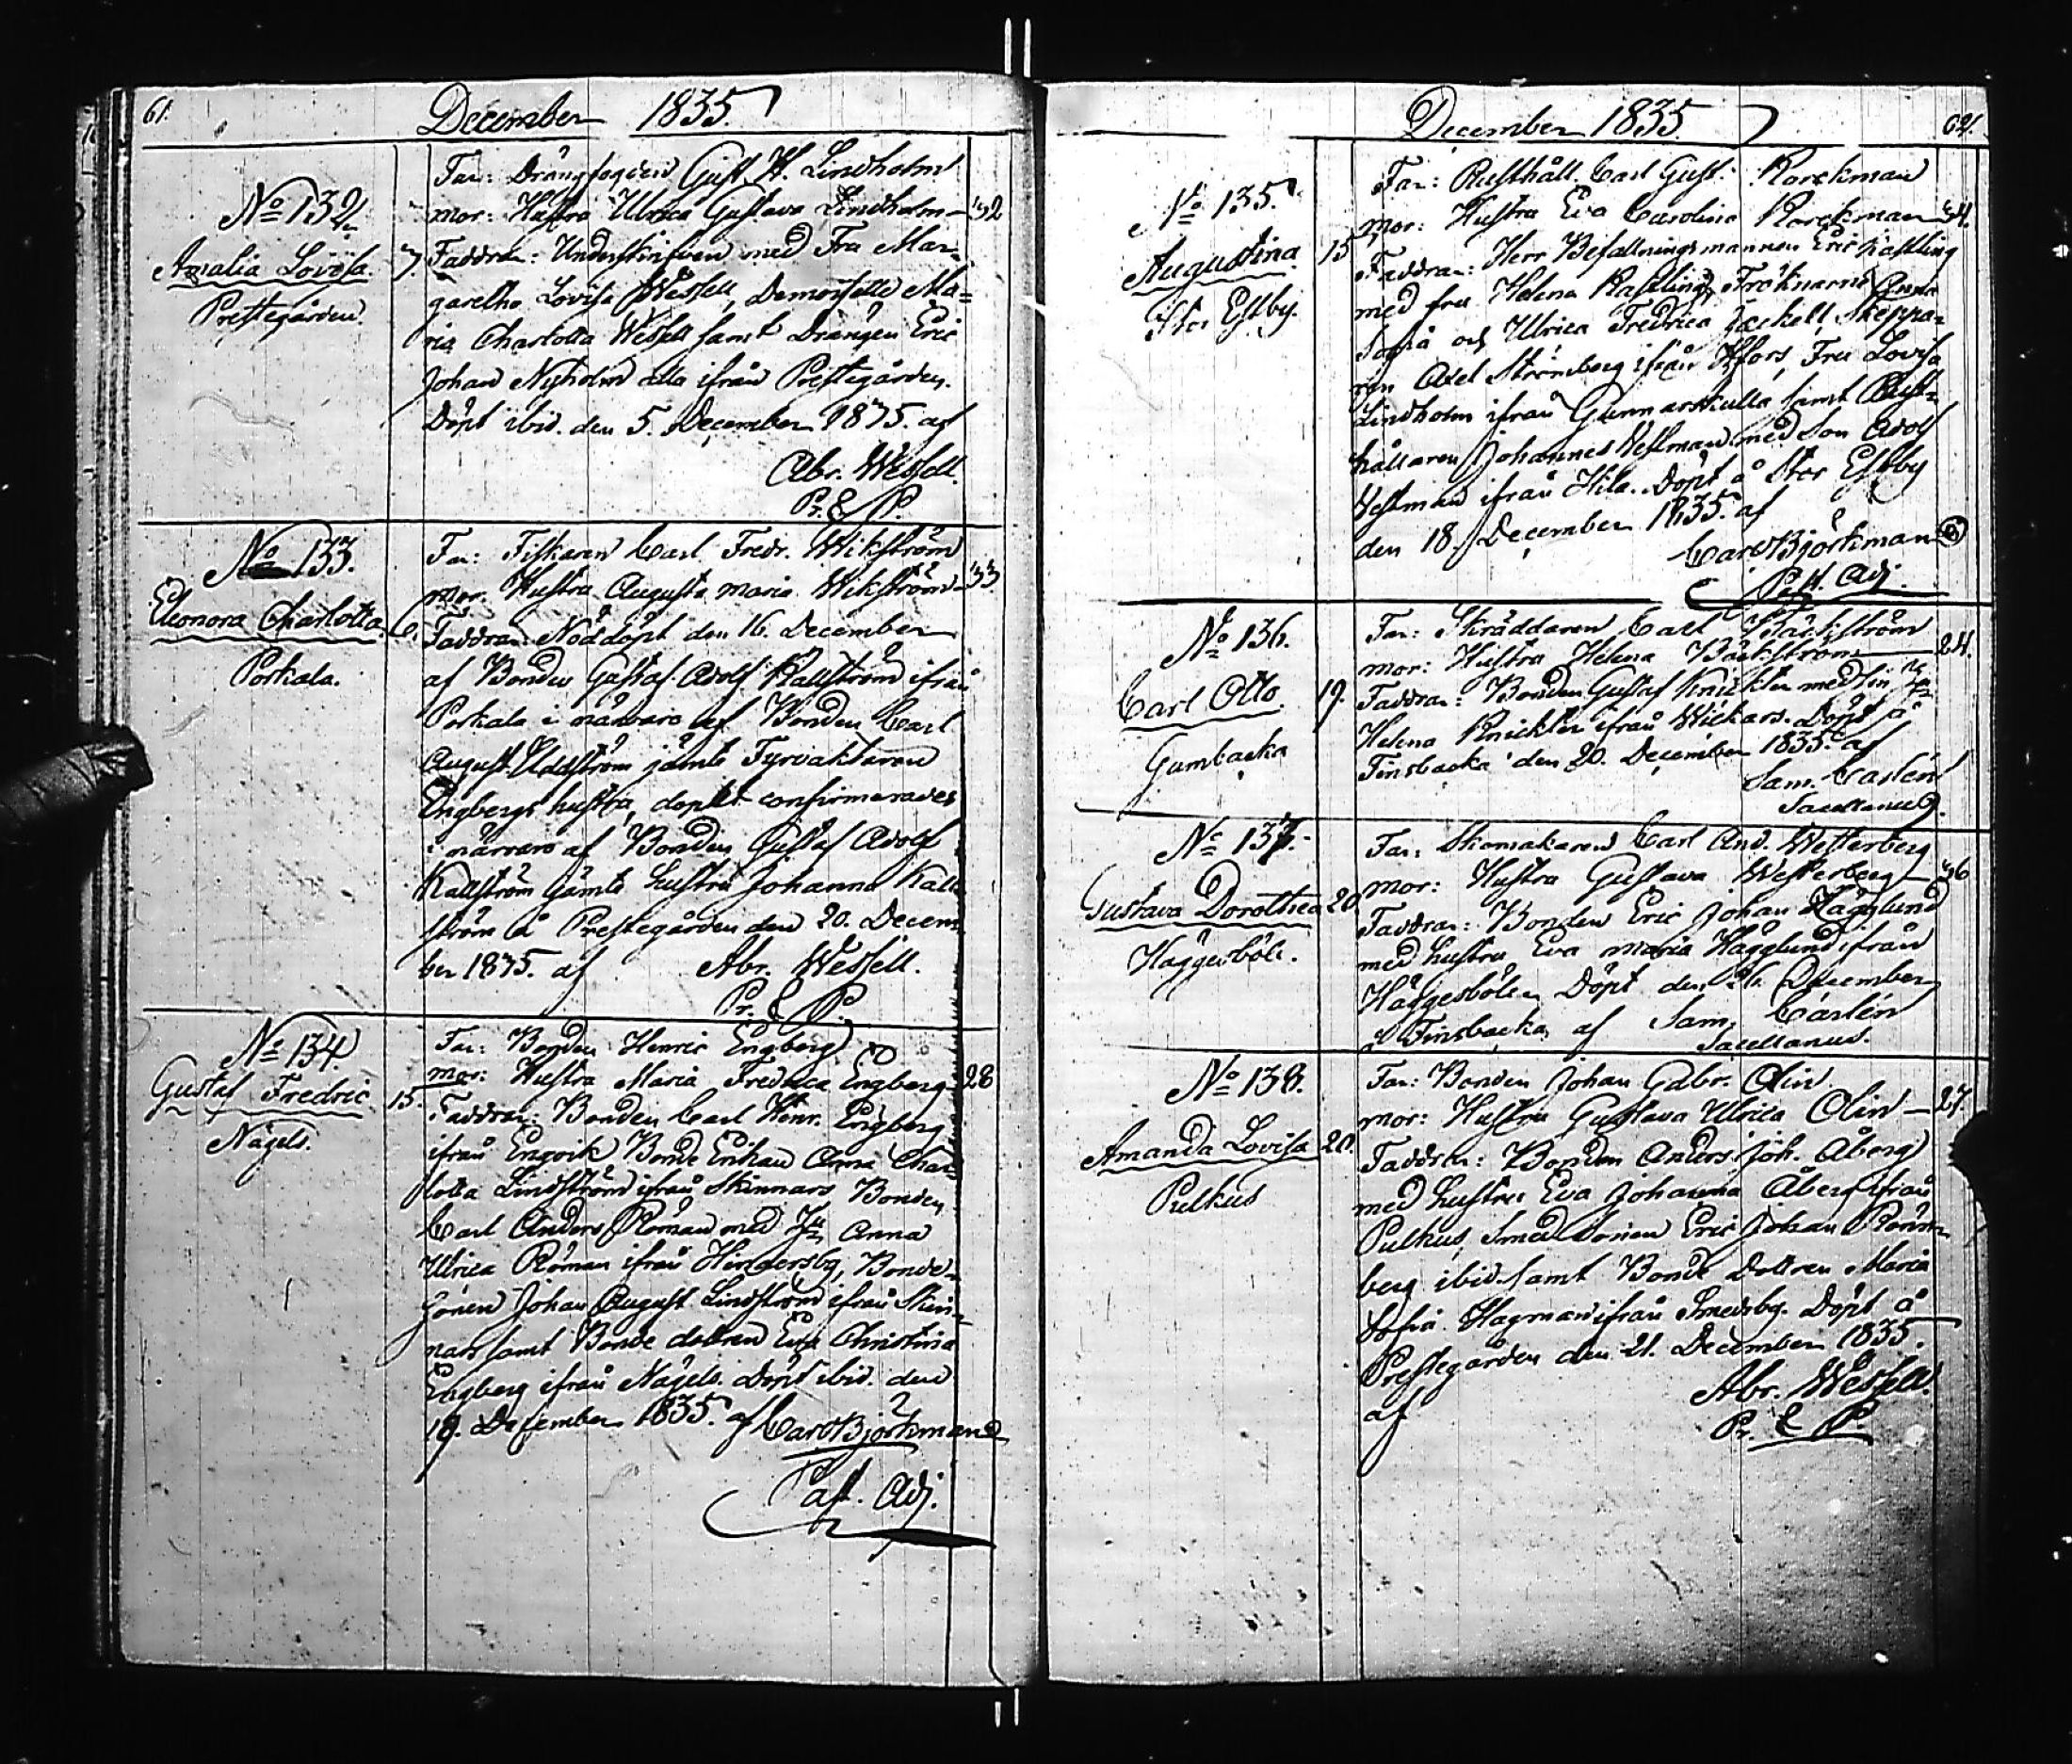 61.
December 1835.
No 132.
Amalia Lovisa. 7.
Prestegården.
Far: Drängfogden Gust. W. Lindholm
mor: Hustru Ulrica Gustava Lindholm — 32
Faddrar: Underskrifven med Fru Mar-
garetha Lovisa Wessell, Demoiselle Ma=
ria Charlotta Wessell samt Drängen Eric
Johan Nyholm alla ifrån Prestegården.
Döpt ibid. den 5. December 1835. af
Abr. Wessell.
Pr. & P.
No 133.
Eleonora Charlotta. 6.
Porkala.
Far: Fiskaren Carl Fredr. Wikström
mor. Hustru Augusta Maria Wikström — 33
Faddrar: Nöddöpt den 16. December
af Bonden Gustaf Adolf Källström ifrån
Porkala i närvaro af Bonden Carl
August Uddström jämte Fyrvaktaren
Engbergs hustru, dopet confirmerades
i närvaro af Bonden Gustaf Adolf
Källström jämte hustru Johanna Käll-
ström å Prestegården den 20. Decem-
ber 1835. af Abr. Wessell.
Pr. & P.
No 134.
Gustaf Fredric. 15.
Nägels.
Far: Bonden Henric Engberg
mor: Hustru Maria Fredrica Engberg — 28
Faddrar: Bonden Carl Henr. Engberg
ifrån Engvik Bonde Enkan Anna Char-
lotta Lindström ifrån Skinnars Bonden
Carl Anders Röman med Hu Anna
Ulrica Röman ifrån Hindersby, Bonde-
sonen Johan August Lindström ifrån Skin-
nars samt Bonde dottren Eva Christina
Engberg ifrån Nägels. Döpt ibid. den
19. December 1835. af Carl Björkman
Past. Adj.
December 1835. 62.
No 135.
Augustina. 15
Stor Esby.
Far: Rusthåll. Carl Gust. Rorckman
mor: Hustru Eva Carolina Rorckman — 34.
Faddrar: Herr Befallningsmannen Eric
med fru Helena Fröknarne Anna
Sofia och Ulrica Fredrica Skeppa-
ren Axel Strömberg ifrån Hfors, Fru Lovisa
Lindholm ifrån Gunnarskulla samt Rust-
hållaren Johannes Westman med Son Adolf
Westman ifrån Hila. Döpt å Stor Esby
den 18. December 1835. af
Carl Björkman
P. Adj.
No 136.
Carl Otto. 19.
Gumbacka
Far: Skräddaren Carl Bäckström
mor: Hustru Helena Bäckström — 24.
Faddrar: Bonden Gustaf Knickter med sin Hu
Helena Knickter ifrån Wickars. Döpt på
Finsbacka den 20. December 1835. af
Sam. Carlén
Sacellanus.
No 137.
Gustava Dorothea 20.
Häggesböle.
Far: Skomakaren Carl And. Wetterberg
mor: Hustru Gustava Wetterberg — 36
Faddrar: Bonden Eric Johan Hägglund
med hustru Eva Maria Hägglund ifrån
Häggesböle. Döpt den 26. December
å Finsbacka af Sam. Carlén
Sacellanus.
No 138.
Amanda Lovisa 20.
Pulkus
Far: Bonden Johan Gabr. Olin.
mor: Hustru Gustava Ulrica Olin — 27.
Faddrar: Bonden Anders Joh. Åberg
med hustru Eva Johanna Åberg ifrån
Pulkus, Smed Sonen Eric Johan Rönn-
berg ibid. samt Bonde Dottren Maria
Sofia Hagman ifrån Smedsby. Döpt å
Prestegården den 21. December 1835.
af Abr. Wessell.
Pr. & P.